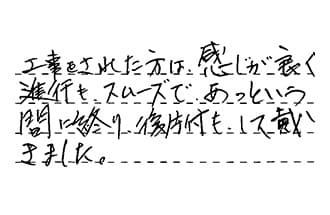 工事をされた方は、感じが良く
進行も、スムーズで、あっという
間に終り、後片付も、して戴い
きました。